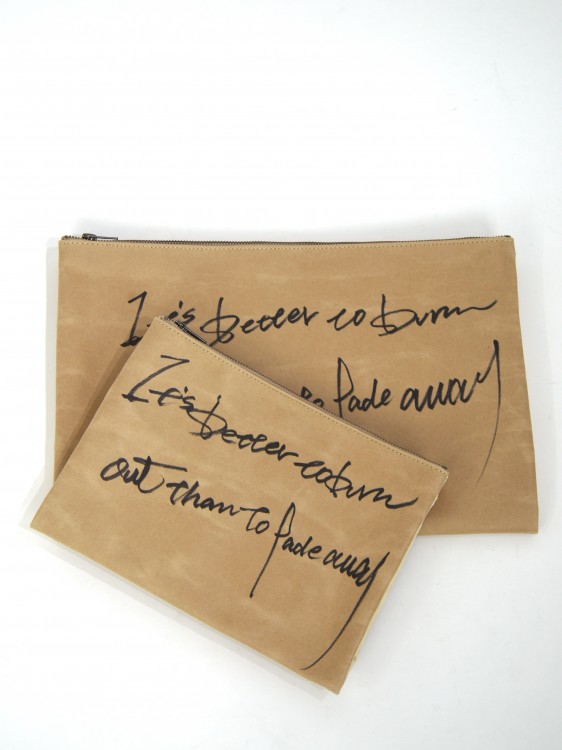 It's better to burn
to fade away
It's better to burn
out than to fade away